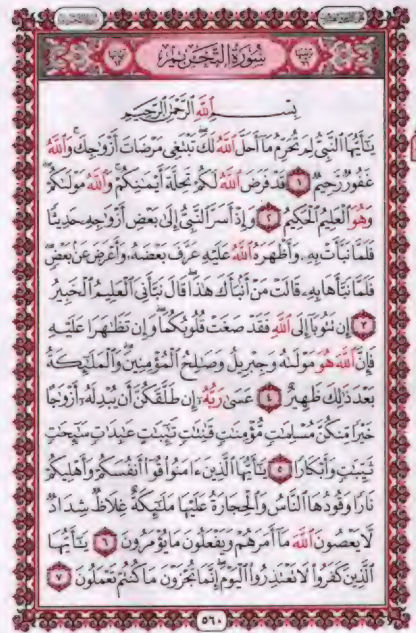 سُورَةُ التَّحْرِيمِ
بِسْمِ اللَّهِ الرَّحْمَٰنِ الرَّحِيمِ
يَٰٓأَيُّهَا النَّبِيُّ لِمَ تُحَرِّمُ مَآ أَحَلَّ اللَّهُ لَكَ تَبْتَغِى مَرْضَاتَ أَزْوَٰجِكَ وَاللَّهُ
غَفُورٌ رَّحِيمٌ ١ قَدْ فَرَضَ اللَّهُ لَكُمْ تَحِلَّةَ أَيْمَٰنِكُمْ وَاللَّهُ مَوْلَىٰكُمْ
وَهُوَ الْعَلِيمُ الْحَكِيمُ ٢ وَإِذْ أَسَرَّ النَّبِيُّ إِلَىٰ بَعْضِ أَزْوَٰجِهِۦ حَدِيثًا
فَلَمَّا نَبَّأَتْ بِهِۦ وَأَظْهَرَهُ اللَّهُ عَلَيْهِ عَرَّفَ بَعْضَهُۥ وَأَعْرَضَ عَنۢ بَعْضٍ
فَلَمَّا نَبَّأَهَا بِهِۦ قَالَتْ مَنْ أَنۢبَأَكَ هَٰذَا قَالَ نَبَّأَنِىَ الْعَلِيمُ الْخَبِيرُ
٣ إِن تَتُوبَآ إِلَى اللَّهِ فَقَدْ صَغَتْ قُلُوبُكُمَا وَإِن تَظَٰهَرَا عَلَيْهِ
فَإِنَّ اللَّهَ هُوَ مَوْلَىٰهُ وَجِبْرِيلُ وَصَٰلِحُ الْمُؤْمِنِينَ وَالْمَلَٰٓئِكَةُ
بَعْدَ ذَٰلِكَ ظَهِيرٌ ٤ عَسَىٰ رَبُّهُۥٓ إِن طَلَّقَكُنَّ أَن يُبْدِلَهُۥٓ أَزْوَٰجًا
خَيْرًا مِّنكُنَّ مُسْلِمَٰتٍ مُّؤْمِنَٰتٍ قَٰنِتَٰتٍ تَٰٓئِبَٰتٍ عَٰبِدَٰتٍ سَٰٓئِحَٰتٍ
ثَيِّبَٰتٍ وَأَبْكَارًا ٥ يَٰٓأَيُّهَا الَّذِينَ ءَامَنُوا قُوٓا أَنفُسَكُمْ وَأَهْلِيكُمْ
نَارًا وَقُودُهَا النَّاسُ وَالْحِجَارَةُ عَلَيْهَا مَلَٰٓئِكَةٌ غِلَاظٌ شِدَادٌ
لَّا يَعْصُونَ اللَّهَ مَآ أَمَرَهُمْ وَيَفْعَلُونَ مَا يُؤْمَرُونَ ٦ يَٰٓأَيُّهَا
الَّذِينَ كَفَرُوا لَا تَعْتَذِرُوا الْيَوْمَ إِنَّمَا تُجْزَوْنَ مَا كُنتُمْ تَعْمَلُونَ ٧
٥٦٠